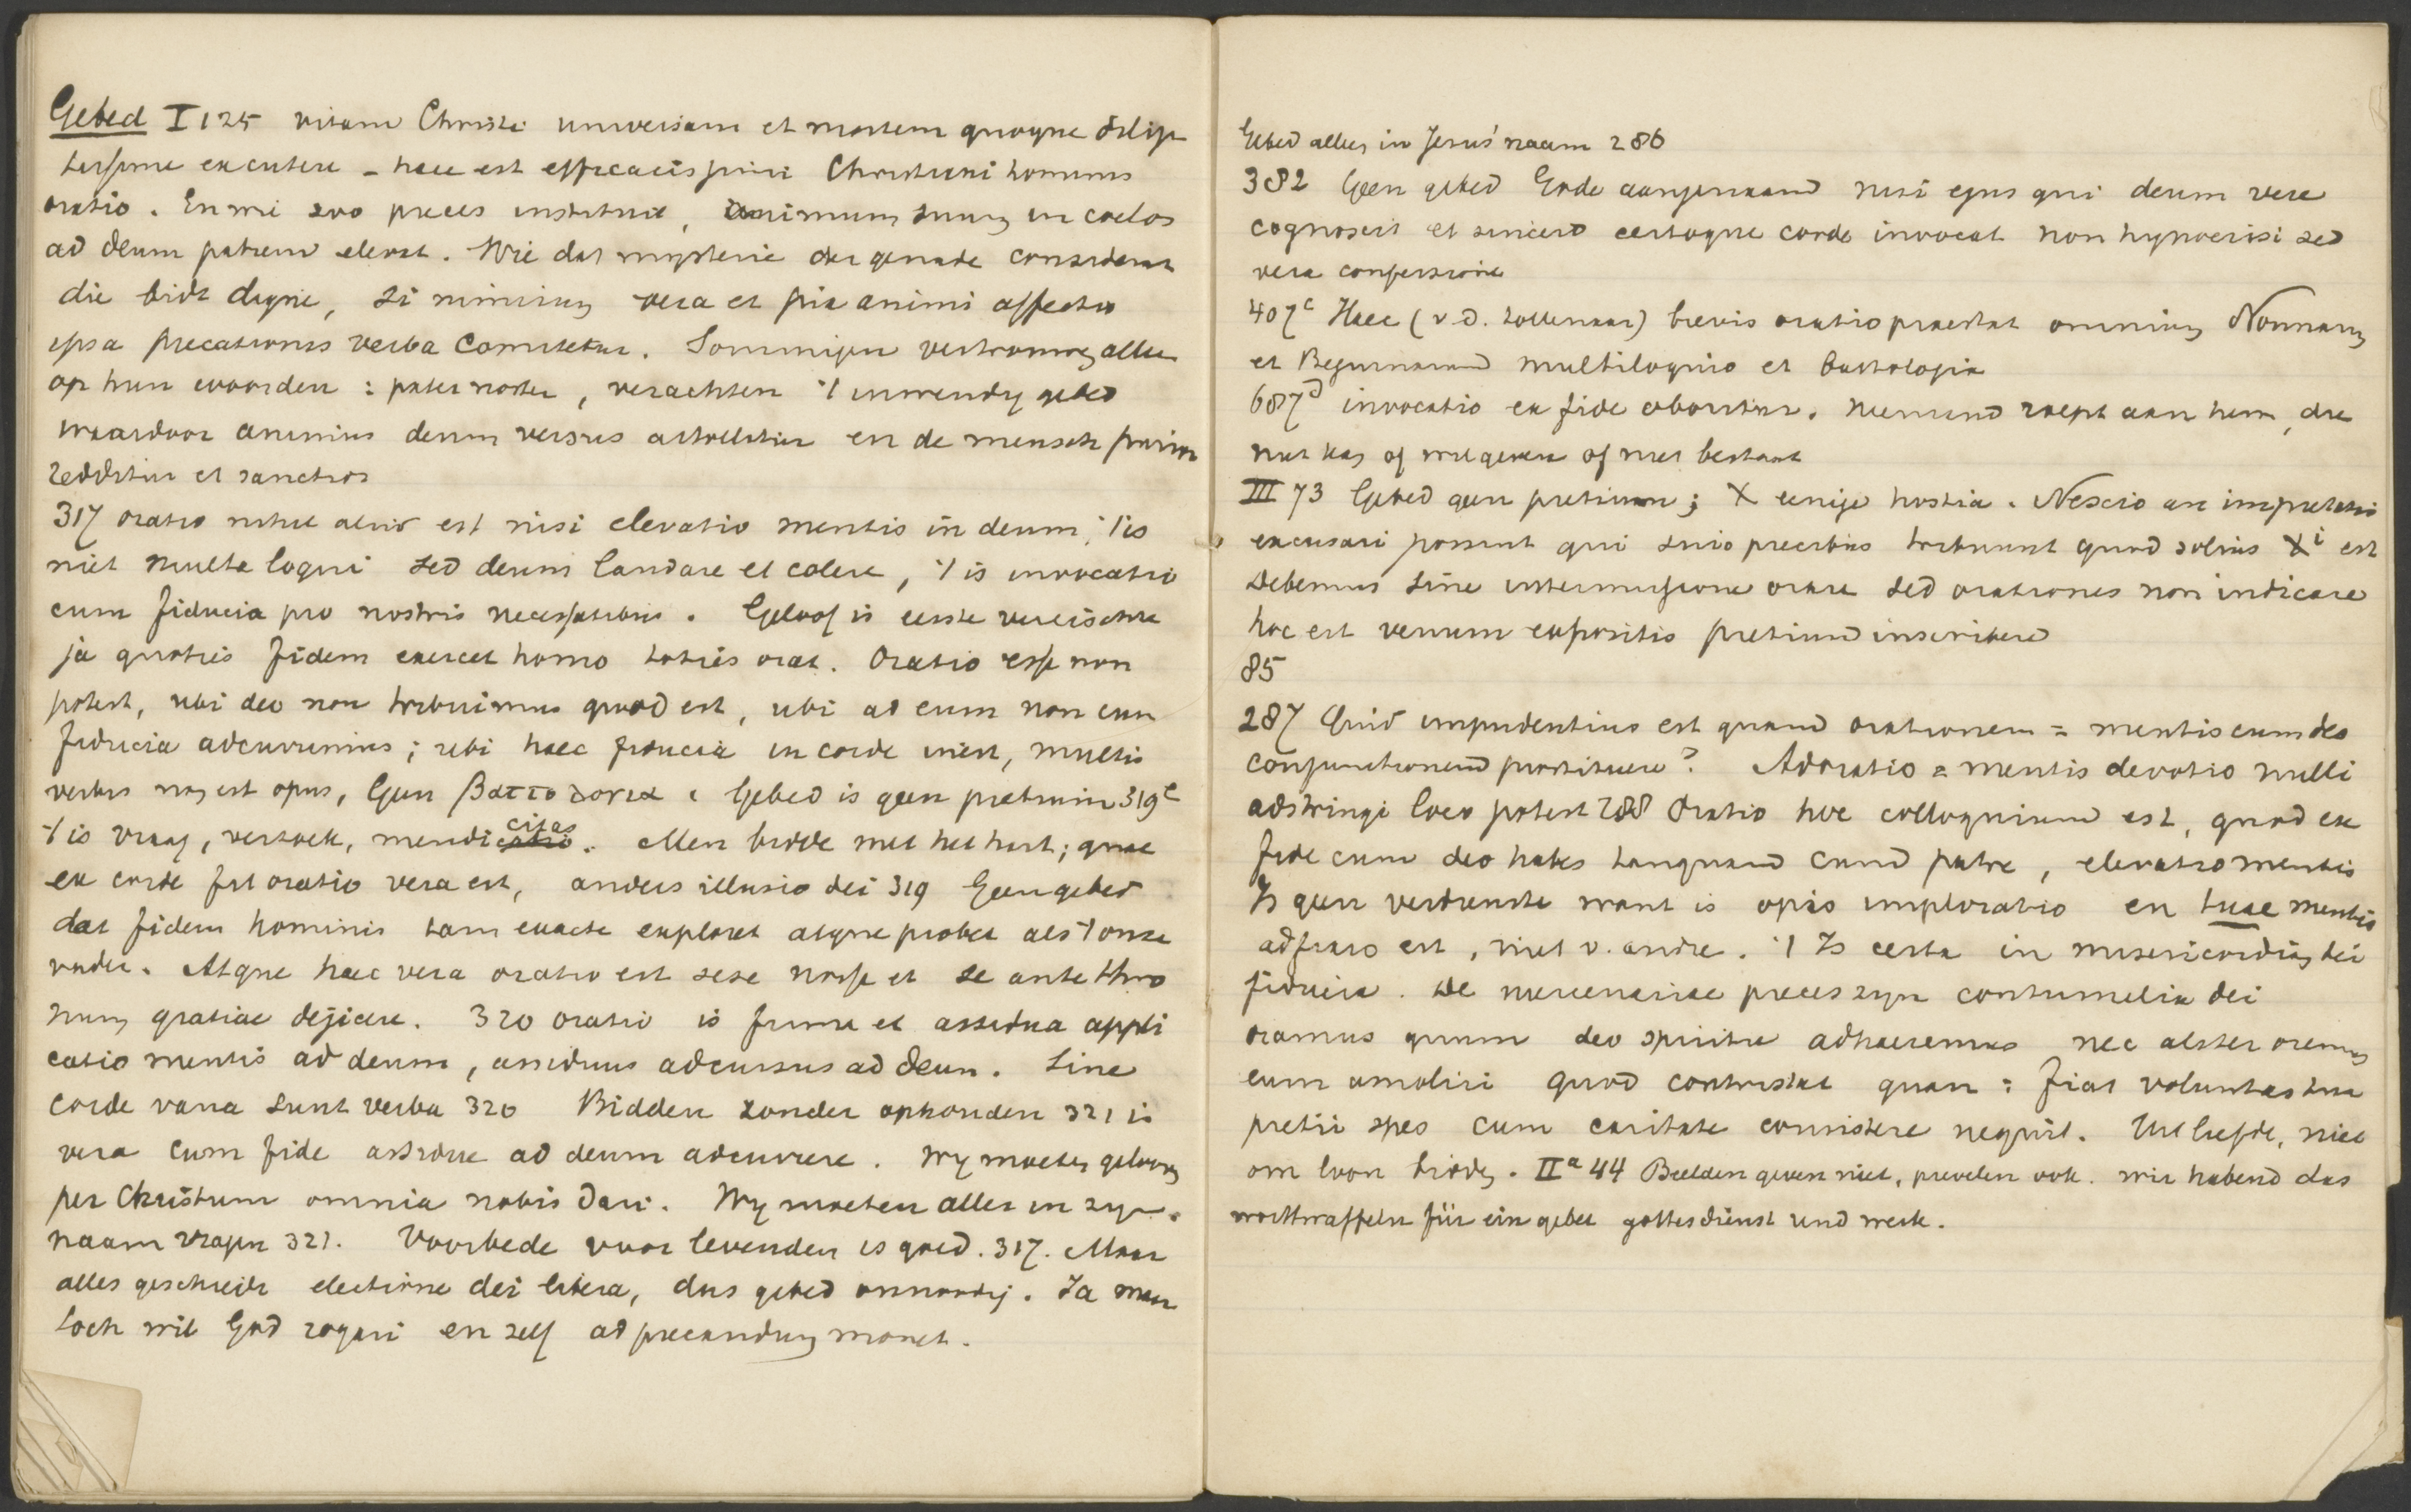 Gebed I 125 vitam Christi universam et mortem quoque dilige
tissime excutere - haec est efficacissimi Christiani hominis
oratio. En wie zoo preces instituit, animum suum in coelos
ad deum patrem elevat. Wie dat mysterie der genade considerat
die bidt digne, si nimirum vera et pia animi affectio
ipsa precationis verba comitetur. Sommigen vertrouwen alleen
op hun woorden : pater noster, verachten 't inwendig gebed
waardoor animus deum versus attollitur en de mensch purior
redditur et sanctior
317 oratio nihil aliud est nisi elevatio mentis in deum, 't is
niet multa loqui sed deum laudare et colere, 't is invocatio
cum fiducia pro nostris necessitatibus. Geloof is eerste vereischte
ja quoties fidem exercet homo toties orat. Oratio esse non
potest, ubi deo non tribuimus quod est, ubi ad eum non cum
fiducia adcurrimus ; ubi haec fiducia in corde inest, multis
verbis non est opus, Geen βαττολογια. Gebed is geen pretium 319c
't is vraag, verzoek, mendicitas. Men bidde met het hart ; quae
ex corde fit oratio vera est, anders illusio dei 319 Geen gebed
dat fidem hominis tam exacte exploret atque probet als 't onze
vader. Atque haec vera oratio est sese nosse et se ante thro
num gratiae dejicere. 320 oratio is firma et assidua appli
catio mentis ad deum, assiduus adcursus ad deum. Sine
corde vana sunt verba 320 Bidden zonder ophouden 321 is
vera cum fide assidue ad deum adcurrere. Wy moeten gelooven
per Christum omnia nobis dari. Wy moeten alles in zyn
naam vragen 321. Voorbede voor levenden is goed. 317. Maar
alles geschiedt electione dei libera, dus gebed onnoodig. Ja maar
toch wil God rogari en zelf ad precandum monet.
Gebed alleen in Jesus' naam 286
382 Geen gebed Gode aangenaam nisi ejus qui deum vere
cognoscit et sincero certoque corde invocat non hypocrisi sed
vera confessione
407c Haec (v. d. tollenaar) brevis oratio praestat omnium Nonnarum
et Beguinarum multiloquio et battologia
687d invocatio ex fide oboritur. Niemand roept aan hem, die
niet kan of wil geven of niet bestaat
III 73 Gebed geen pretium ; X eenige hostia. Nescio an impietatis
excusari possint qui suis precibus tribuunt quod solius Xi est
Debemus sine intermissione orare sed orationes non indicare
hoc est venum expositis pretium inscribere
85
287 Quid impudentius est quam orationem = mentis cum deo
conjunctionem prostituere? Adoratio = mentis devotio nulli
adstringi loco potest 288 Oratio hoc colloquium est, quod ex
fide cum deo habes tanquam cum patre, elevatio mentis
Is geen verdienste want is opis imploratio en tuae mentis
adfixio est, niet v. andre. 't Is certa in misericordiam dei
fiducia. De mercenariae preces zyn contumelia dei
oramus quum deo spiritu adhaeremus nec aliter oremus
eum amoliri quod contristat quam : fiat voluntas tua
pretii spes cum caritate consistere nequit. Uit liefde, niet
om loon bidden. IIa 44 Beelden geven niet, prevelen ook. wir habend das
wortwaffeln für ein gebet gottesdienst und werk.